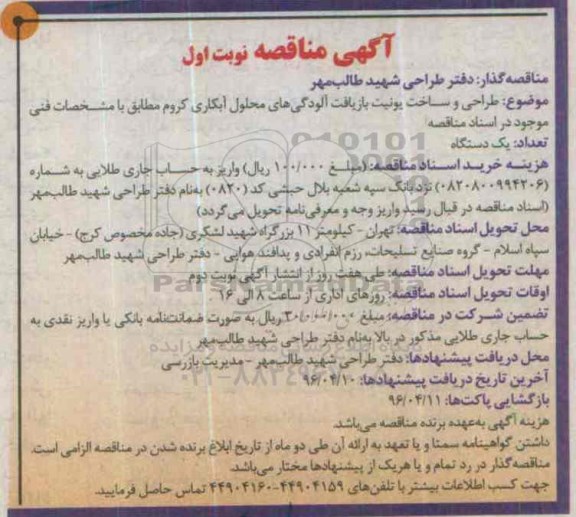 آگهی مناقصه نوبت اول
مناقصه‌گذار: دفتر طراحی شهید طالب‌مهر
موضوع: طراحی و ساخت یونیت بازیافت آلودگی‌های محلول آبکاری کروم مطابق با مشخصات فنی
موجود در اسناد مناقصه
تعداد: یک دستگاه
هزینه خرید اسناد مناقصه: (مبلغ ۱۰۰/۰۰۰ ریال) واریز به حساب جاری طلایی به شماره
(۰۸۲۰۸۰۰۹۹۴۲۰۶) نزد بانک سپه شعبه بلال حبشی کد (۰۸۲۰) به‌نام دفتر طراحی شهید طالب‌مهر
(اسناد مناقصه در قبال رسید واریز وجه و معرفی‌نامه تحویل می‌گردد)
محل تحویل اسناد مناقصه: تهران - کیلومتر ۱۱ بزرگراه شهید لشکری (جاده مخصوص کرج) - خیابان
سپاه اسلام - گروه صنایع تسلیحات، رزم انفرادی و پدافند هوایی - دفتر طراحی شهید طالب‌مهر
مهلت تحویل اسناد مناقصه: طی هفت روز از انتشار آگهی نوبت دوم
اوقات تحویل اسناد مناقصه: روزهای اداری از ساعت ۸ الی ۱۶
تضمین شرکت در مناقصه: مبلغ ۳۰/۰۰۰/۰۰۰ ریال به صورت ضمانت‌نامه بانکی یا واریز نقدی به
حساب جاری طلایی مذکور در بالا به‌نام دفتر طراحی شهید طالب‌مهر
محل دریافت پیشنهادها: دفتر طراحی شهید طالب‌مهر - مدیریت بازرسی
آخرین تاریخ دریافت پیشنهادها: ۹۶/۰۴/۱۰
بازگشایی پاکت‌ها: ۹۶/۰۴/۱۱
هزینه آگهی به‌عهده برنده مناقصه می‌باشد.
داشتن گواهینامه سمتا و یا تعهد به ارائه آن طی دو ماه از تاریخ ابلاغ برنده شدن در مناقصه الزامی است.
مناقصه‌گذار در رد تمام و یا هریک از پیشنهادها مختار می‌باشد.
جهت کسب اطلاعات بیشتر با تلفن‌های ۴۴۹۰۴۱۵۹-۴۴۹۰۴۱۶۰ تماس حاصل فرمایید.
ParsNamadData